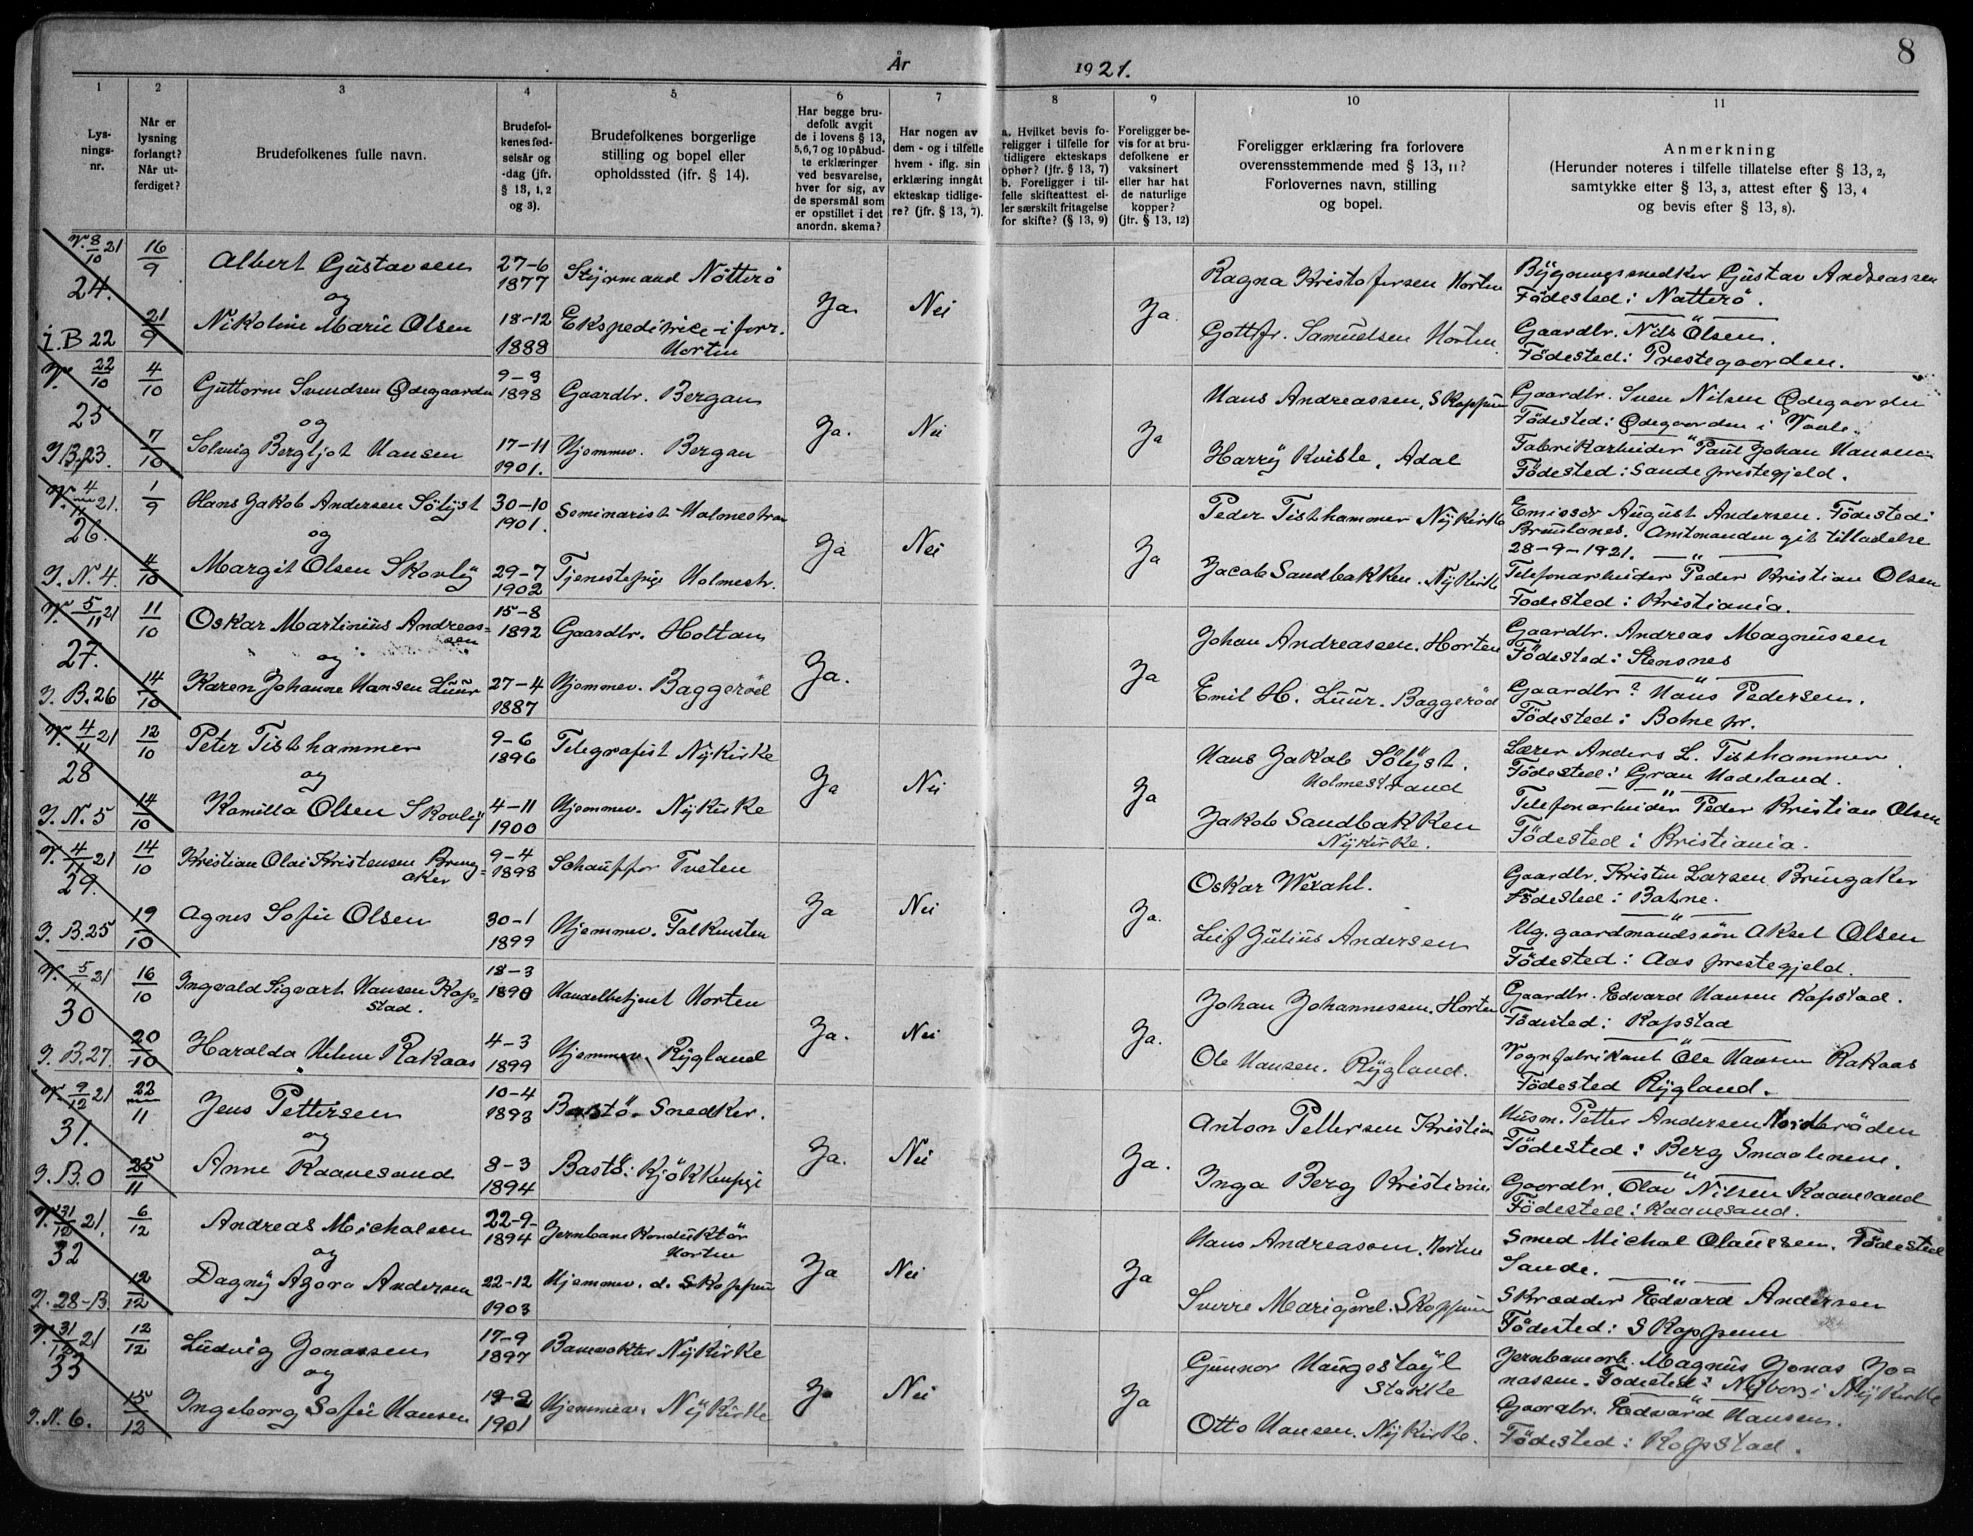 8
År 1921.
1 2 3 4 5 6 7 8 9 10 11
Lys-
nings-
nr.
Når er
lysning
forlangt?
Når ut-
ferdiget?
Brudefolkenes fulle navn.
Brudefol-
kenes fød-
selsår og
-dag (jfr.
§ 13, 1, 2
og 3).
Brudefolkenes borgerlige
stilling og bopel eller
opholdssted (ifr. § 14).
Har begge bru-
defolk avgit
de i lovens § 13,
5,6,7 og 10 påbud-
te erklæringer
ved besvarelse,
hver for sig, av
de spørsmål som
er opstillet i det
anordn. skema?
Har nogen av
dem - og i tilfelle
hvem - iflg. sin
erklæring inngåt
ekteskap tidlige-
re? (jfr. § 13, 7).
a. Hvilket bevis fo-
religger i tilfelle for
tidligere ekteskaps
ophør? (jfr. § 13, 7)
b. Foreligger i til-
felle skifteattest el-
ler særskilt fritagelse
for skifte? (§ 13, 9)
Foreligger be-
vis for at bru-
defolkene er
vaksinert
eller har hat
de naturlige
kopper?
(jfr. § 13, 12)
Foreligger erklæring fra forlovere
overensstemmende med § 13, 11?
Forlovernes navn, stilling
og bopel.
Anmerkning
(Herunder noteres i tilfelle tillatelse efter § 13, 2,
samtykke etter § 13, 3, attest efter § 13, 4
og bevis efter § 13, 8).
V. 8/10 21 16/9 Albert Gustavsen 27-6 1877 Styrmand Nötterö Ragna Kristofersen Horten Bygningssnedker Gustav Andreassen
24. og Ja. Nei Ja. Födested: Nötterö.
i. B 22 21/9 Nikoline Marie Olsen 18-12 1888 Ekspeditrice i forr. Horten Gottfr. Samuelsen Horten Gaardbr. Nils Olsen.
Födested: Prestegaarden.
V. 22/10 4/10 Guttorm Svendsen Ødegaarden 9-3 1898 Gaardbr. Bergan Hans Andreassen, Skoppum Gaardbr. Sven Nilsen Ødegaarden
25 og Ja. Nei Ja Födested: Ødegaarden i Vaale.
I B. 23. 7/10 Solveig Bergljot Hansen 17-11 1901. Hjemmev. Bergan Harry Kvisle, Adal Fabrikarbeider Paul Johan Hansen
Födested: Sande prestegjeld.
V. 4/11 21. 1/9 Hans Jakob Andersen Sölyst 30-10 1901. Seminarist Holmestran Peder Tisthammer Nykirke Emissær August Andersen. Födested:
26. og Ja Nei Ja Amtmanden git tilladelse
28-9-1921.
I. N. 4. 4/10 Margit Olsen Skovly 29-7 1902 Tjenestepige Holmestr. Jacob Sandbakken. Nykirke Telefonarbeider Peder Kristian Olsen
Födested: Kristiania.
V. 5/11 21 11/10 Oskar Martinius Andreas-
sen 15-8 1892 Gaardbr. Holtan Johan Andreassen. Horten Gaardbr. Andreas Magnussen
27. og Ja. Ja Födested: Stensnes
I. B. 26 14/10 Karen Johanne Hansen Luur 27-4 1887 Hjemmev. Baggeröd Emil H. Luur. Baggeröd Gaardbr. Hans Pedersen.
Födested: Botne pr.
V. 4/11 21 12/10 Peter Tisthammer 9-6 1896 Telegrafist Nykirke Hans Jakob Sölyst. Holmestrand Lærer Anders L. Tisthammer.
28 og Ja Nei Ja Födested: Gran Hadeland.
I. N. 5 14/10 Kamilla Olsen Skovly 4-11 1900 Hjemmev. Nykirke Jakob Sandbakken Nykirke. Telefonarbeider Peder Kristian Olsen
Födested i Kristiania.
V. 4/11 21 14/10 Kristian Olai Kristensen Bring-
aker 9-4 1898 Schauffør Tveten Oskar Gaardbr. Kristen Larsen Bringaker
29. Ja Nei Ja. Födested: Botne.
I. B. 25 19/10 Agnes Sofie Olsen 30-1 1899 Hjemmev. Falkensten Leif Julius Andersen Ug. gaardmandssön Aksel Olsen
Födested: Aas prestegjeld.
V. 5/11 21 16/10 Ingvald Sigvart Hansen Kop-
stad. 18-3 1890 Handelbetjent Horten Johan Johannessen. Horten Gaardbr. Edvard Hansen Kopstad.
30 Ja. Nei Ja. Födested: Kopstad
I. B. 27. 20/10 Haralda Helene Rakaas 4-3 1899 Hjemmev. Rygland Ole Hansen. Rygland. Vognfabrikant Ole Hansen Rakaas
Födested Rygland.
V. 9/12 21 22/11 Jens Pettersen 10-4 1893 Bastö. Snedker. Anton Pettersen Kristian Husm. Petter Andersen
31. og Ja. Nei Ja. Födested: Berg Smaalenene.
I. B. 0 25/11 Anne Raavesand 8-3 1894 Bastö: Kjökkenpige Inga Berg Kristiania Gaardbr. Olav Nilsen Raavesand
Födested: Raavesand.
V. 31/12 21. 6/12 Andreas Michalsen 22-9- 1894 Jernbane Konduktör Horten Hans Andreassen. Horten Smed Michal Olaussen. Födested
32 og Ja Nei Ja Sande.
I. 28-B. 12/12 Dagny Agora Andersen 22-12 1903 Hjemmev. d. Skoppum Sverre Skoppum Skrædder Edvard Andersen
Födested: Skoppum
V. 31/12 21 12/12 Ludvig Jonassen 17-9 1897 Banevokter Nykirke Gunnar Haugestøyl Stokke Jernbanearb. Magnus Jonas Jo-
33 og Ja Nei Ja nassen. Födested: Nyborg i Nykirke
I. N. 6. 15/12 Ingeborg Sofie Hansen 19-2 1901 Hjemmev. Nykirke Otto Hansen. Nykirke. Gaardbr. Edvard Hansen.
Födested: Kopstad.